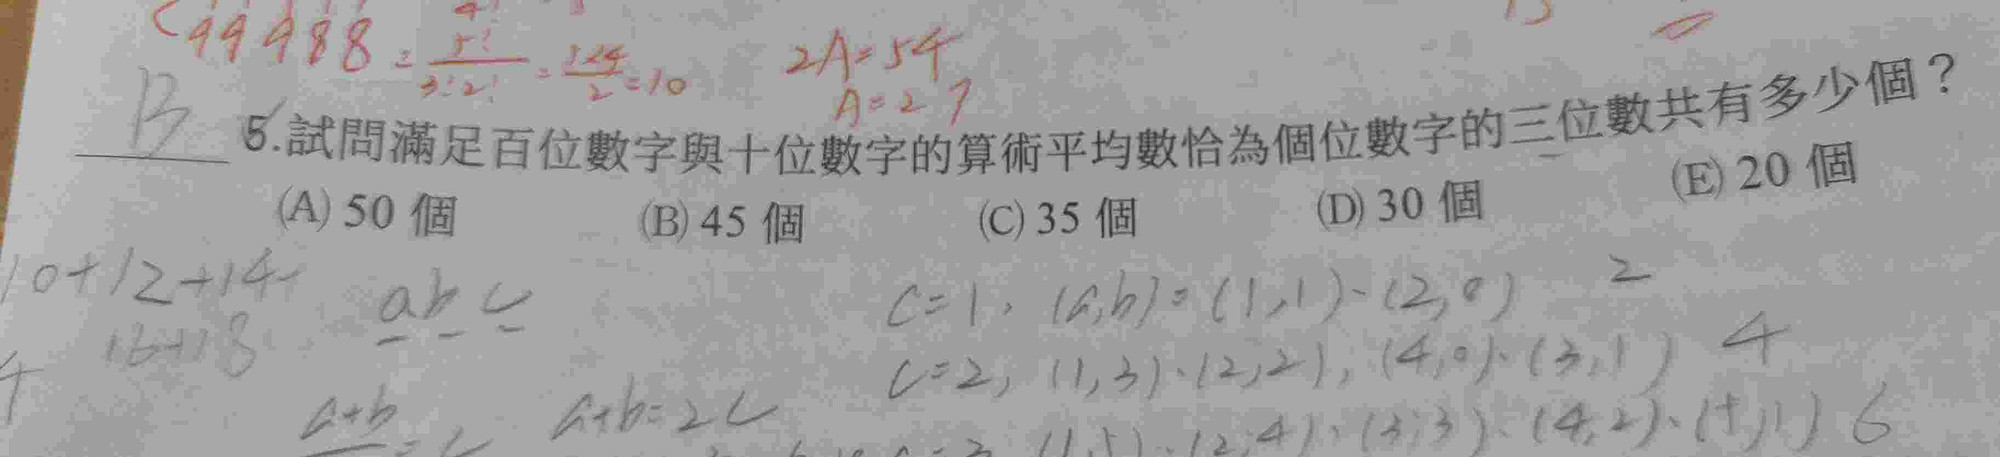 99988 = 5!/3!2! = 5×4/2 = 10
2A=54
A=27
B 5.試問滿足百位數字與十位數字的算術平均數恰為個位數字的三位數共有多少個？
(A) 50 個 (B) 45 個 (C) 35 個 (D) 30 個 (E) 20 個
10+12+14+
16+18
a b c
C=1, (a,b)=(1,1)、(2,0) 2
C=2, (1,3)、(2,2), (4,0)、(3,1) 4
a+b a+b=2c
(2,4)、(3,3)、(4,2)、 6